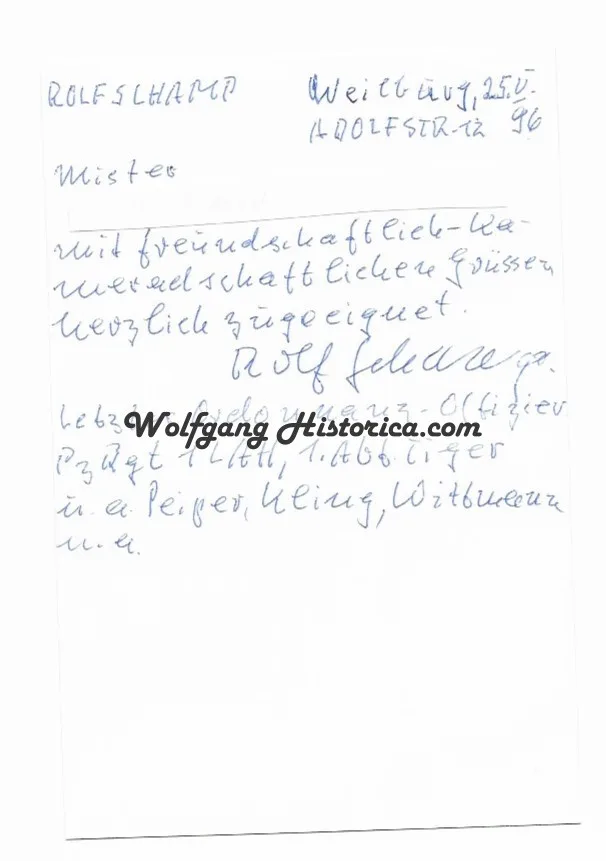 ROLF SCHAMP Weilburg, 25.V.
ADOLFSTR. 12 96
Mister
mit freundschaftlich-ka-
meradschaftlichen Grüssen
herzlich zugeeignet.
Rolf Schamp
Wolfgang Historica.com
Letzter Ordonnanz-Offizier
Pz Rgt 1 LAH, 1. Abt. Tiger
u. a. Peiper, Kling, Wittmann
u. a.